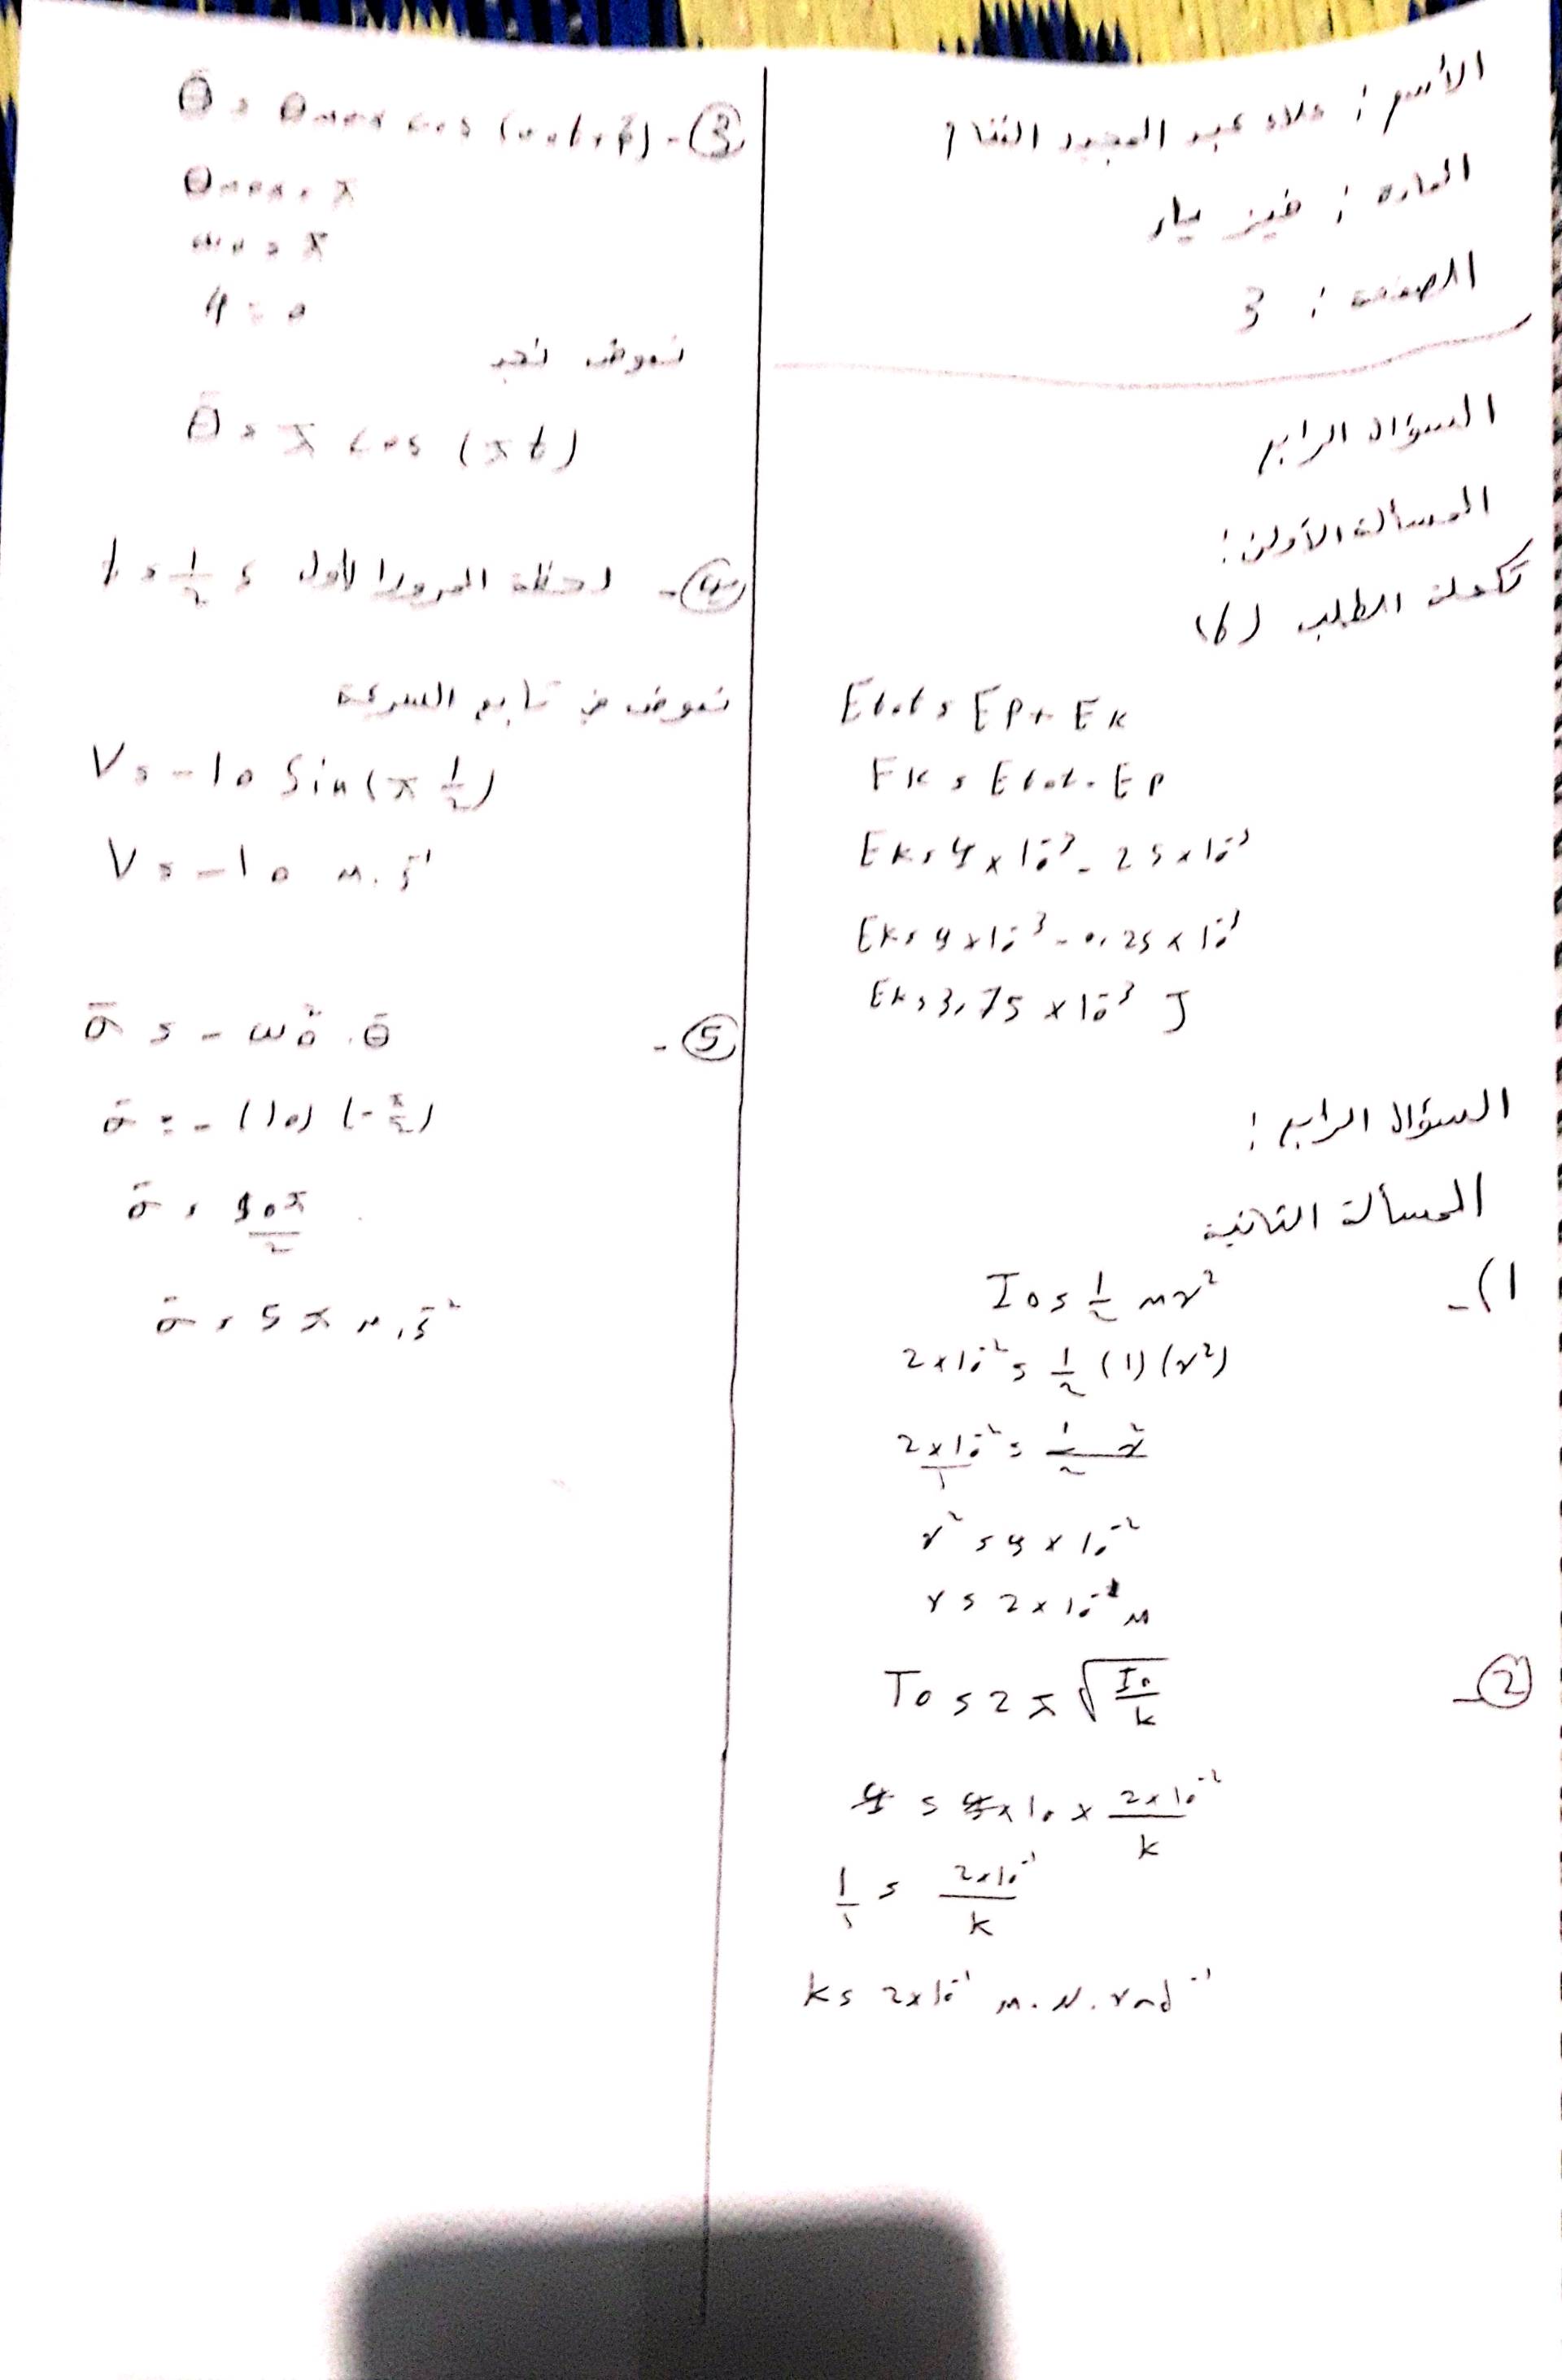 الأسم : علاء عبد المجيد النقام
المادة : فيزياء
الصفحة : 3
السؤال الرابع
المسألة الأولى :
تكملة الطلب (b)
Etot = EP + EK
EK = Etot - EP
EK = 4 × 10⁻³ - 25 × 10⁻⁵
EK = 4 × 10⁻³ - 0,25 × 10⁻³
EK = 3,75 × 10⁻³ J
السؤال الرابع :
المسألة الثانية
1) - I₀ = 1/2 m r²
2 × 10⁻² = 1/2 (1) (r²)
2 × 10⁻² / 1 = 1/2 r²
r² = 4 × 10⁻²
r = 2 × 10⁻¹ m
② - T₀ = 2π √(I₀/k)
4 = 4 × 10 × 2 × 10⁻² / k
1/1 = 2 × 10⁻¹ / k
k = 2 × 10⁻¹ m.N.rad⁻¹
③ - θ̄ = θmax cos (ω₀t + φ̄)
θmax = π
ω₀ = π
φ = 0
نعوض نجد
θ̄ = π cos (πt)
④ - لحظة المرور الأول t = 1/2 s
نعوض في تابع السرعة
V = -10 Sin (π 1/2)
V = -10 m.s⁻¹
⑤ - ᾱ = - ω₀² . θ̄
ᾱ = - (10) (-π/2)
ᾱ = 10π / 2
ᾱ = 5π m.s⁻²